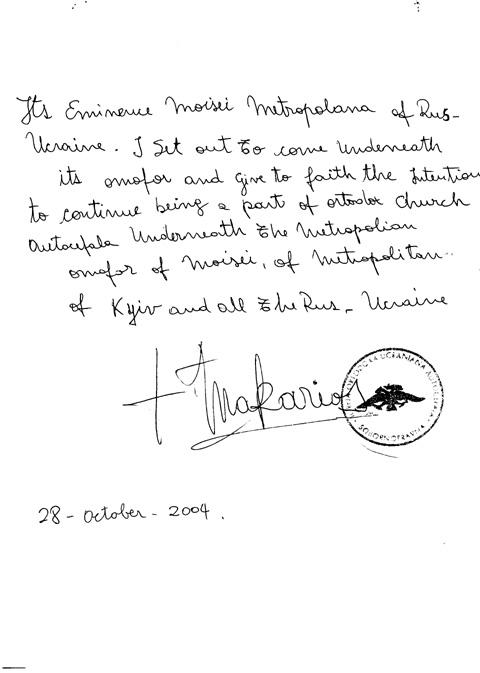 Its Eminence Moisei Metropolana of Rus-
Ucraine. I Set out to come Underneath
its omofor and give to faith the Intention
to continue being a part of ortodox church
autocefala Underneath the Metropolian
omofor of Moisei, of Metropolitan
of Kyiv and all the Rus - Ucraine
+ Makarios
UCRANIANA
28 - October - 2004.